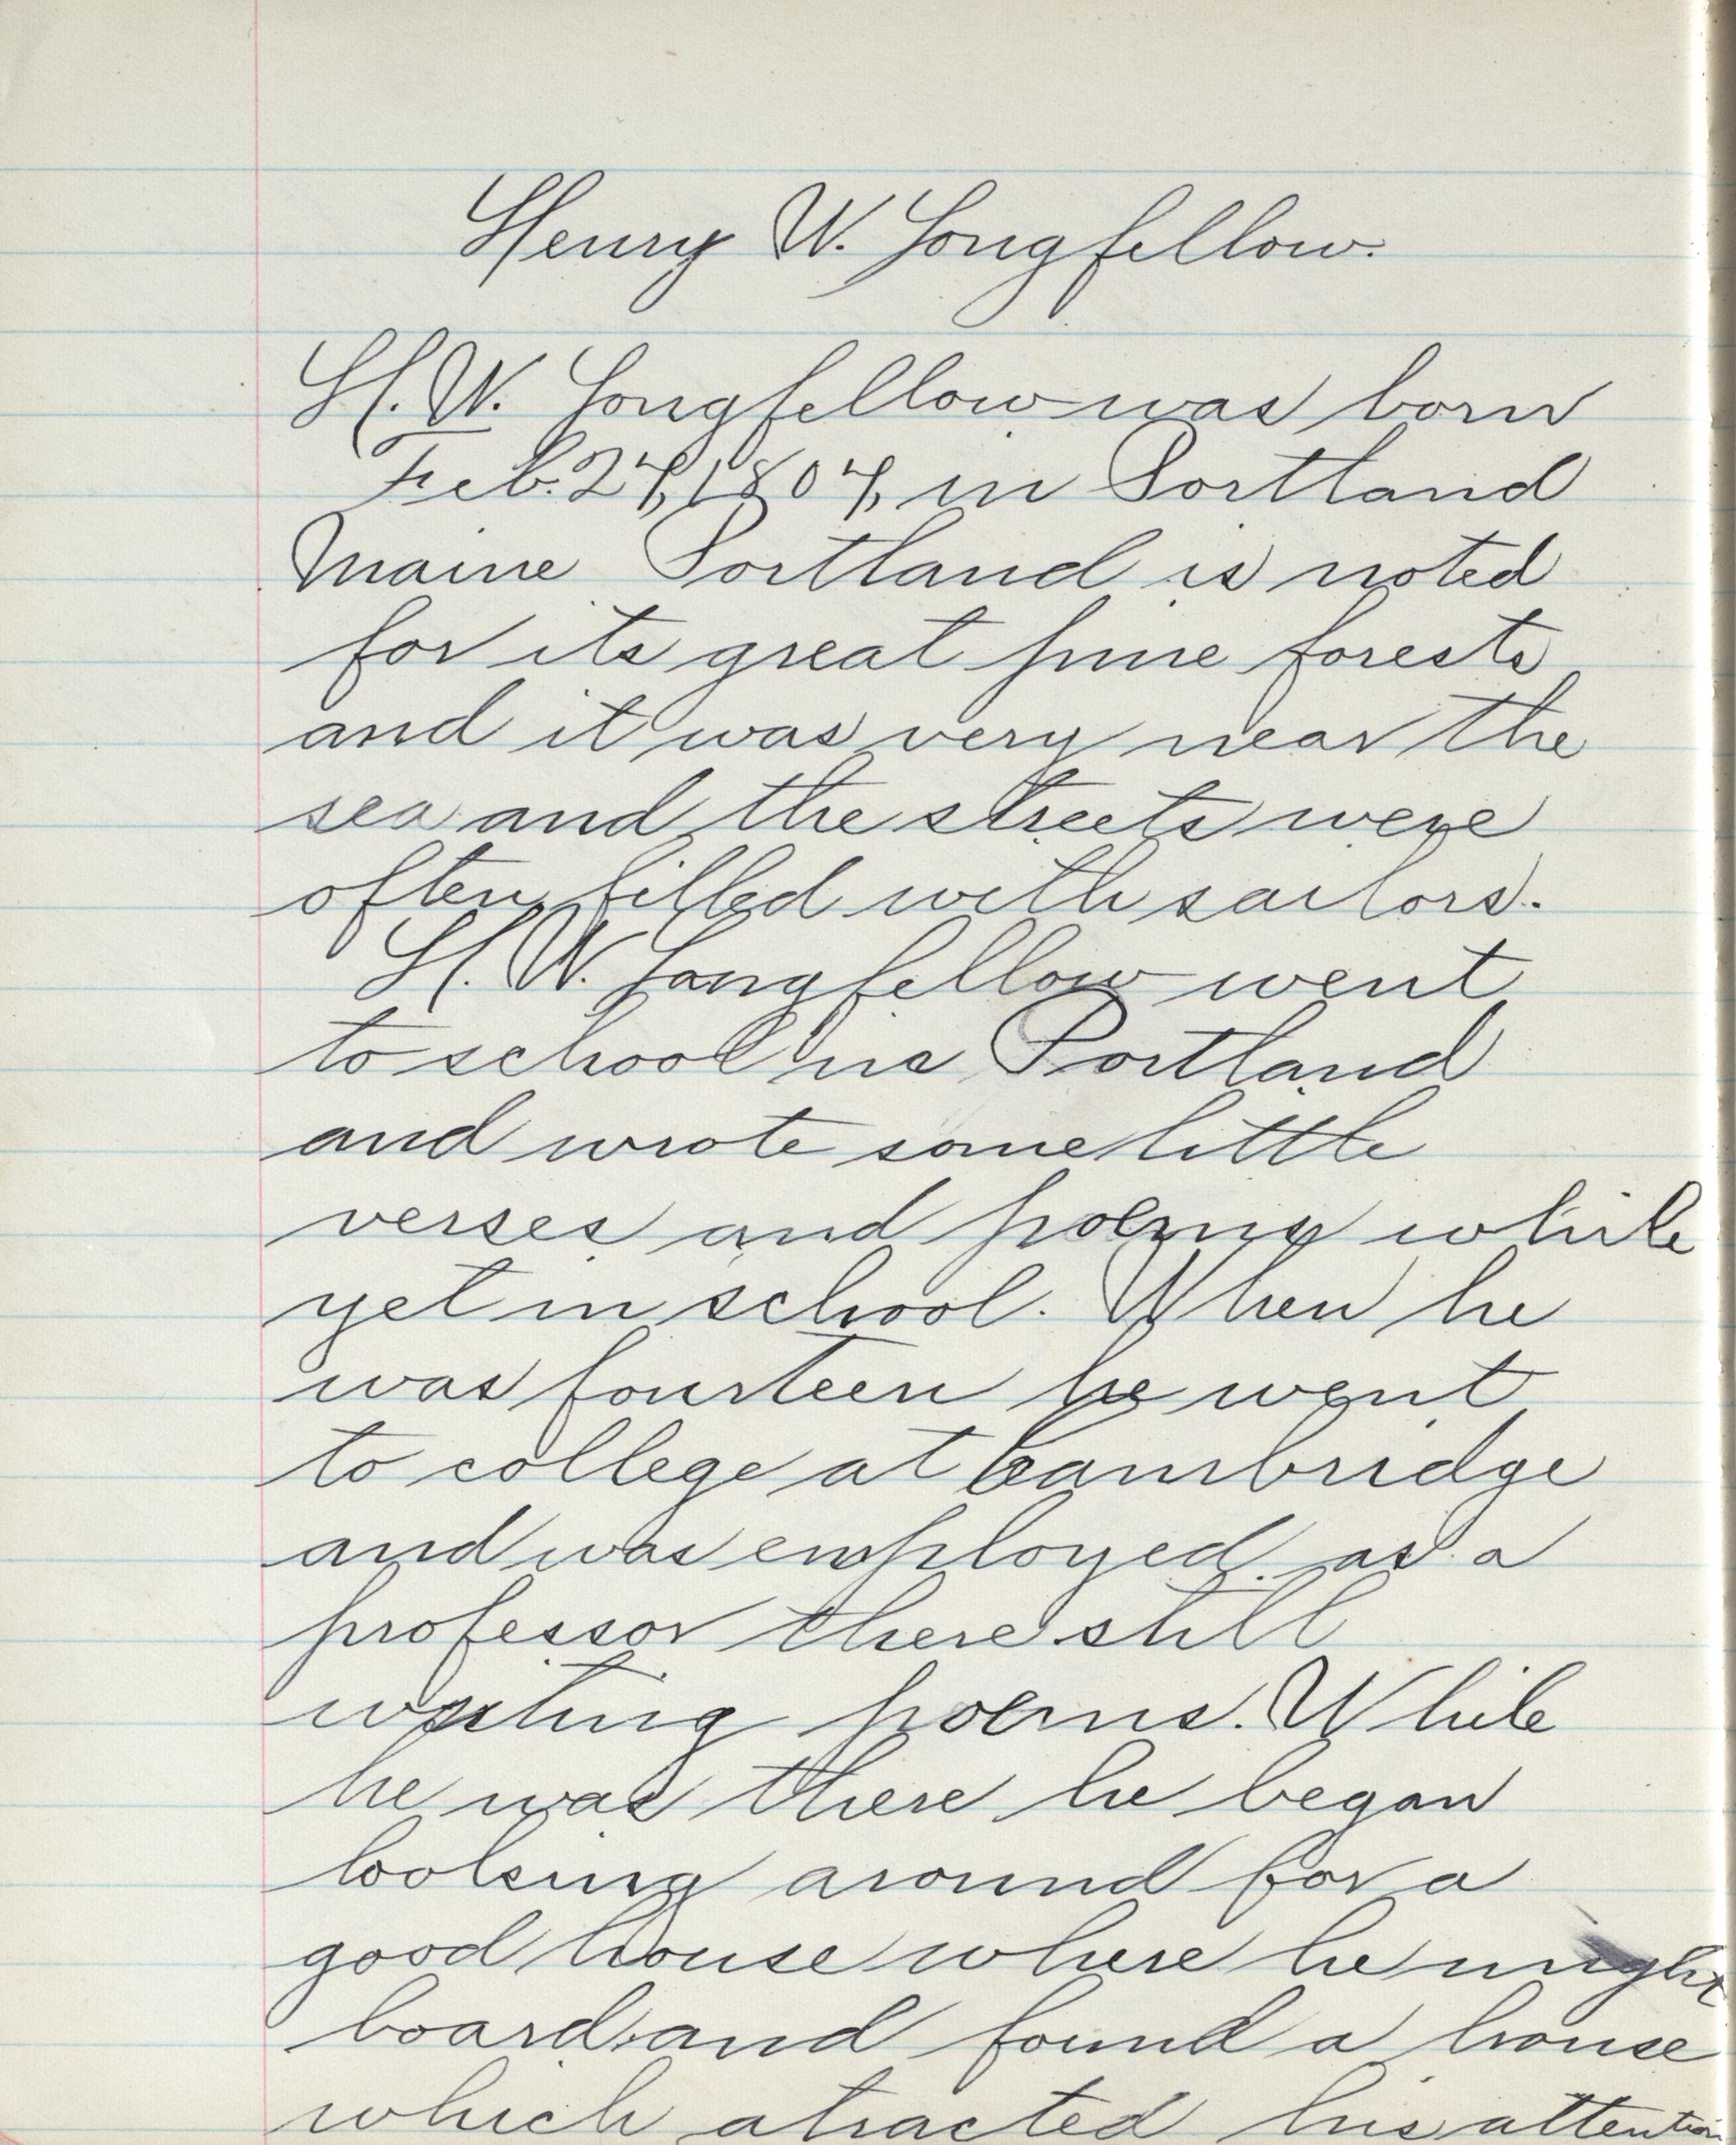 Henry W. Longfellow.
H. W. Longfellow was born
Feb. 27, 1807, in Portland
Maine Portland is noted
for its great pine forests
and it was very near the
sea and the streets were
often filled with sailors.
H. W. Longfellow went
to school in Portland
and wrote some little
verses and poems while
yet in school. When he
was fourteen he went
to college at Cambridge
and was employed as a
professor there still
writing poems. While
he was there he began
looking around for a
good house where he might
board and found a house
which atracted his attention